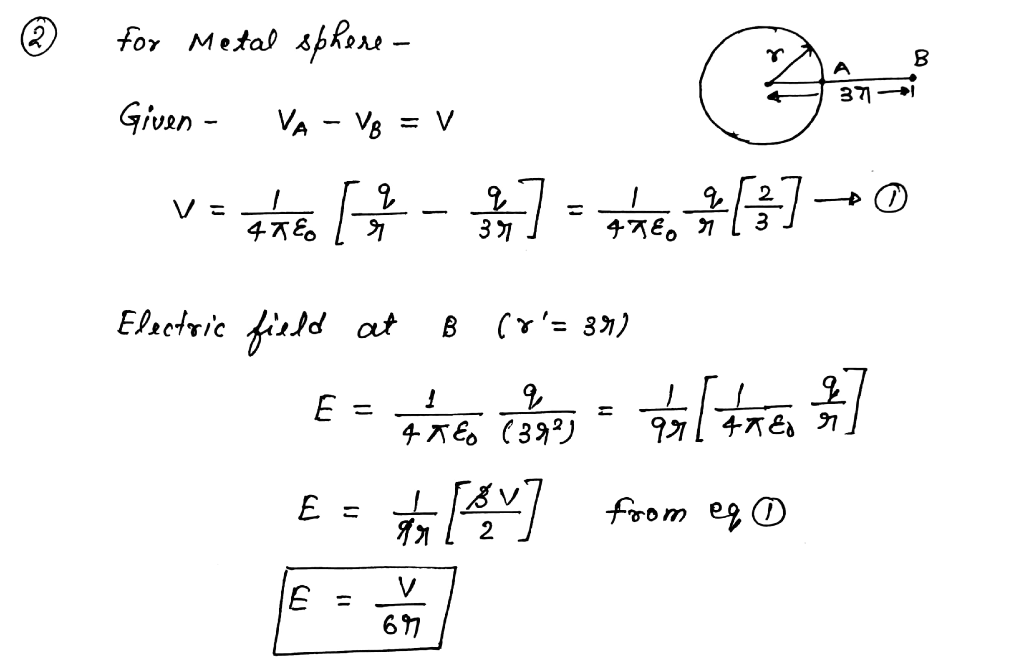 ② for Metal sphere –
r A B
3r
Given – V_A – V_B = V
V = 1/4πε₀ [q/r – q/3r] = 1/4πε₀ q/r [2/3] → ①
Electric field at B (r' = 3r)
E = 1/4πε₀ q/(3r²) = 1/9r [1/4πε₀ q/r]
E = 1/9r [3V/2] from eq ①
E = V/6r